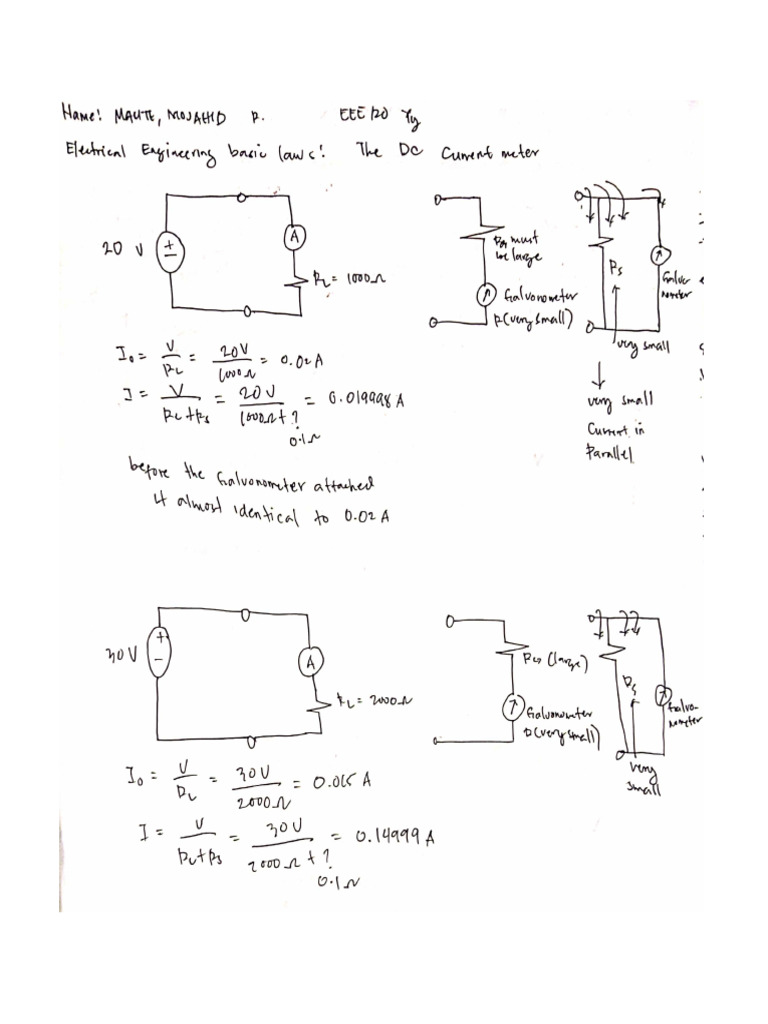 Name: MAUTE, MOJAHID R. EEE 120
Electrical Engineering basic laws: The DC Current meter
20 V
+
−
A
RL = 1000Ω
must be large
Galvonometer
R (very small)
Rs
Galvonometer
very small
very small
Current in
Parallel
I₀ = V/RL = 20V/1000Ω = 0.02 A
I = V/(RL+Rs) = 20V/(1000Ω + ?) = 0.019998 A
0.1Ω
before the Galvonometer attached
it almost identical to 0.02 A
30V
+
−
A
RL = 2000Ω
(large)
Galvonometer
R (very small)
Rs
Galvonometer
very
small
I₀ = V/RL = 30V/2000Ω = 0.015 A
I = V/(RL+Rs) = 30V/(2000Ω + ?) = 0.14999 A
0.1Ω